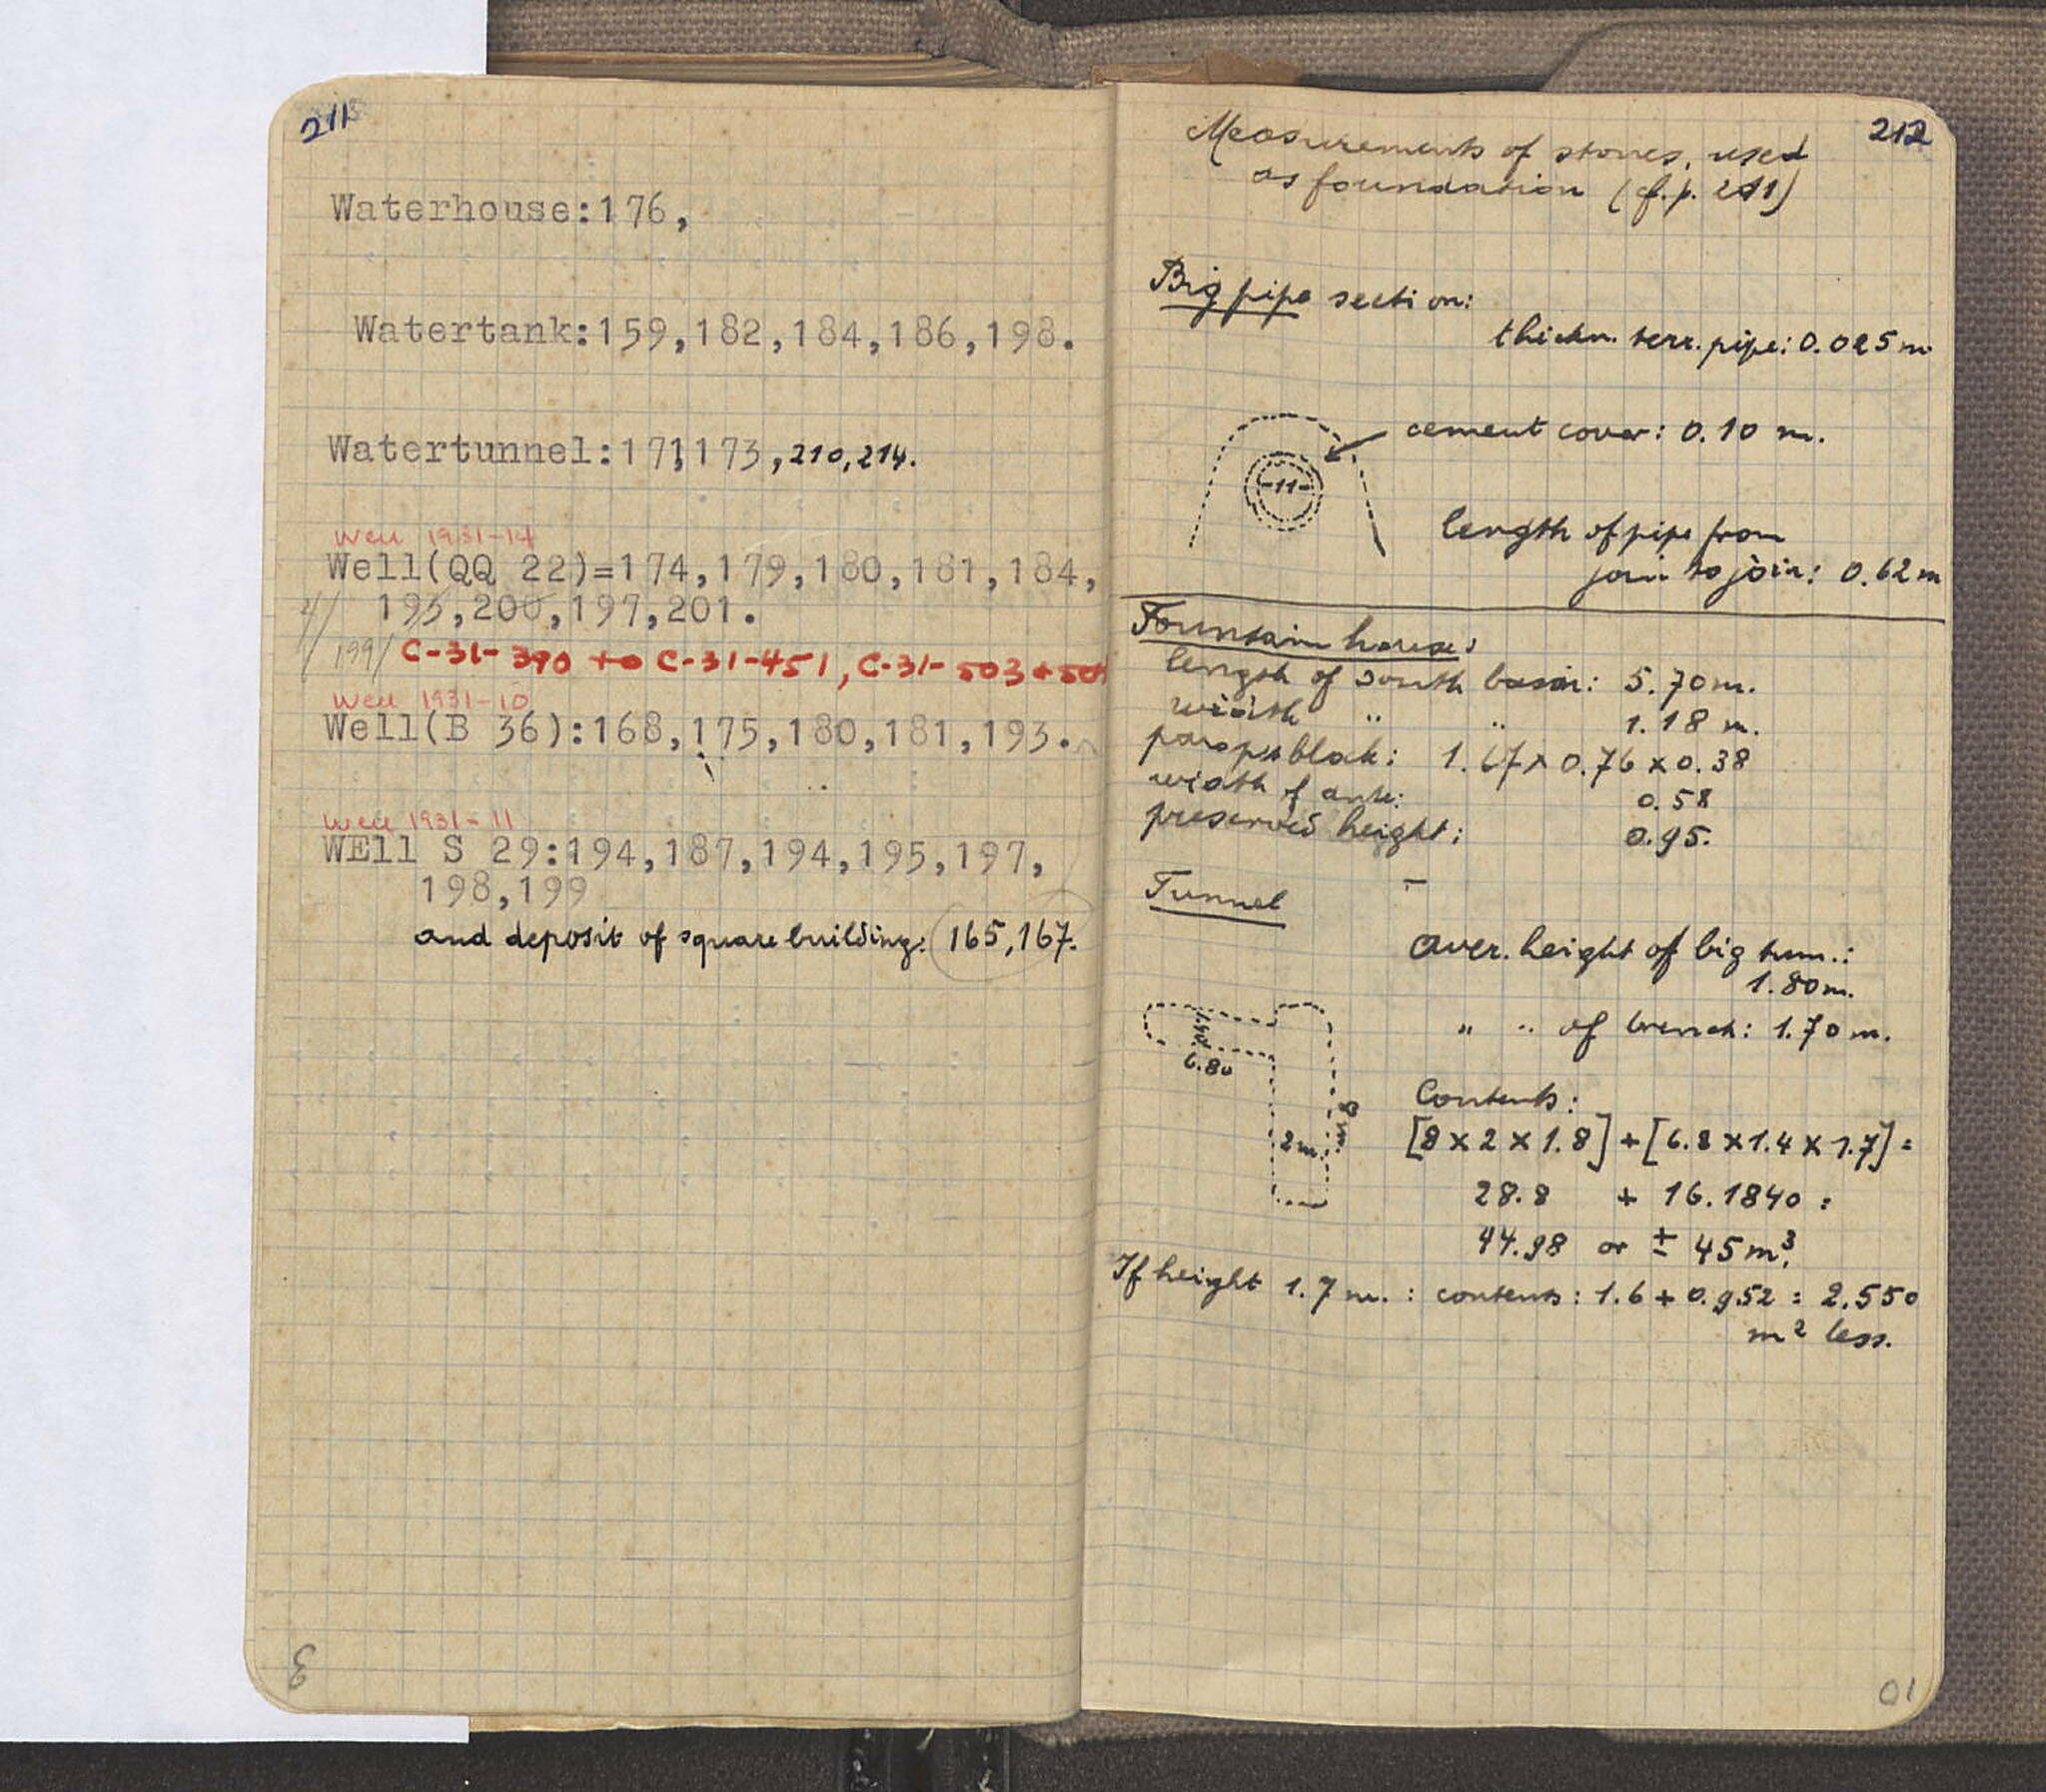 211
Waterhouse:176,
Watertank:159,182,184,186,198.
Watertunnel:171,173,210,214.
Well 1931-14
Well(QQ 22)=174,179,180,181,184,
195,200,197,201.
199/ C-31-390 to C-31-451, C-31-503+504
Well 1931-10
Well(B 36):168,175,180,181,193.
Well 1931-11
WEll S 29:194,187,194,195,197,
198,199
and deposit of square building: 165,167.
3
212
Measurements of stones, used
as foundation (cf. p. 211)
Big pipe section:
thickn. terr. pipe: 0.025 m
cement cover: 0.10 m.
-11-
length of pipe from
join to join: 0.62 m
Fountain house:
length of south basin: 5.70 m.
width " " 1.18 m.
parapet block: 1.67 x 0.76 x 0.38
width of ante: 0.58
preserved height: 0.95.
Tunnel
aver. height of big tunn.:
1.80 m.
" " of branch: 1.70 m.
1.40
6.80
8 m
2 m.
Contents:
[8 x 2 x 1.8] + [6.8 x 1.4 x 1.7] =
28.8 + 16.1840 =
44.98 or ± 45 m³.
If height 1.7 m. : contents: 1.6 + 0.952 = 2.550
m² less.
10